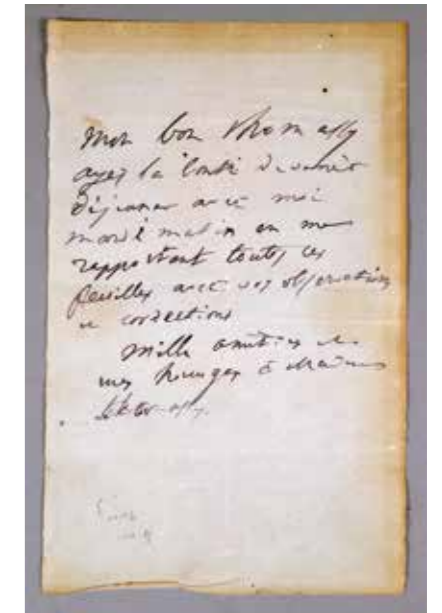 Mon bon Thomassy
ayez la bonté de venir
déjeuner avec moi
mardi matin en me
rapportant toutes ces
feuilles avec vos observations
et corrections
Mille amitiés et
mes hommages à Madame
Thomassy.